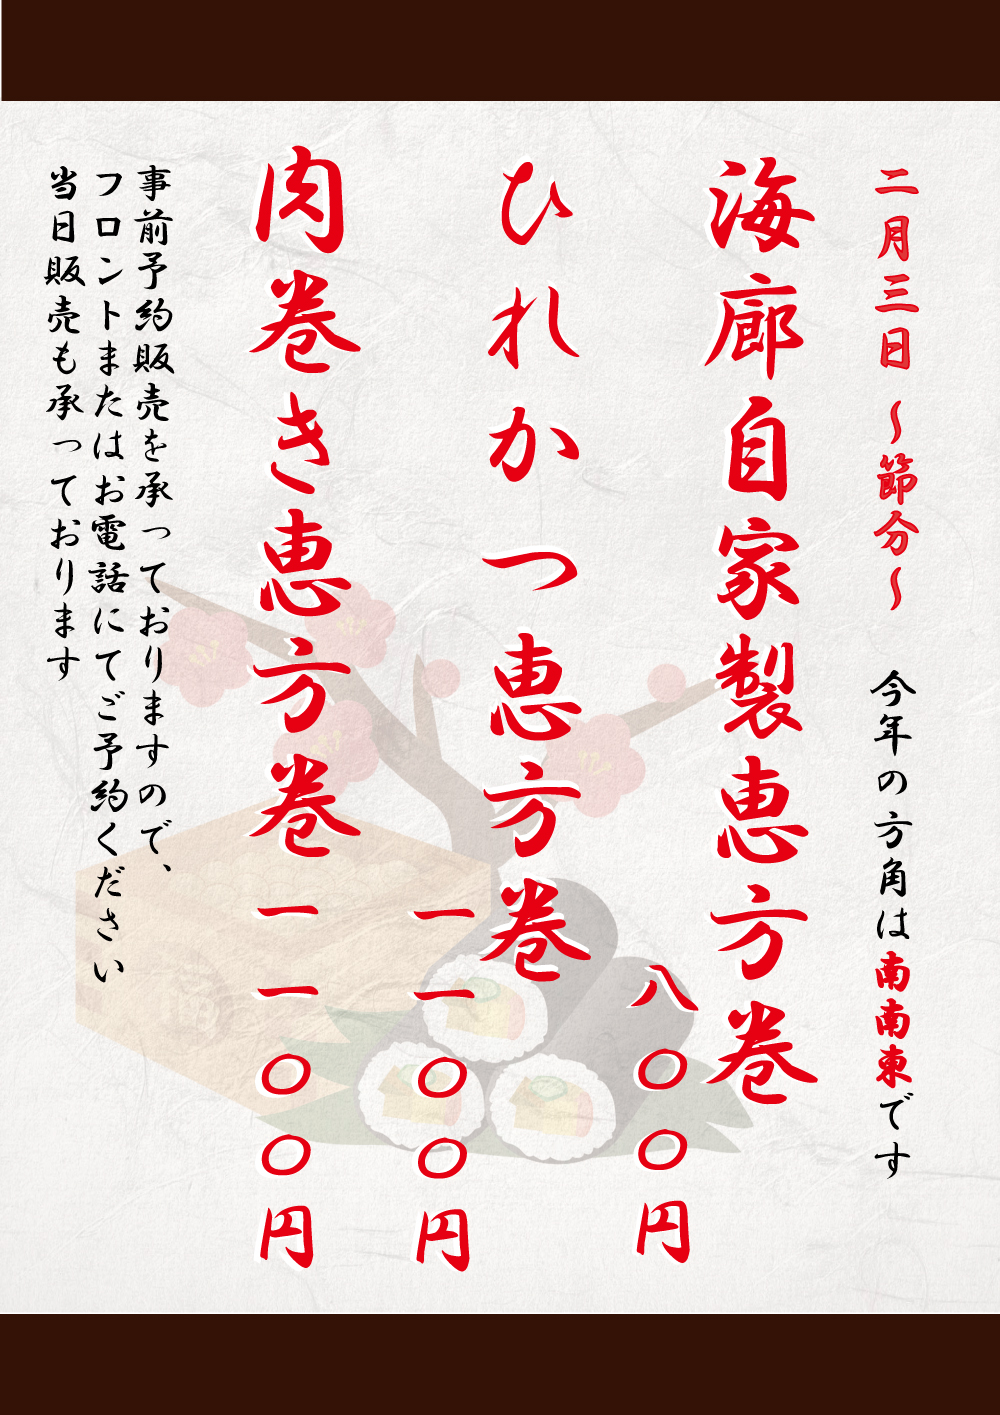 二月三日 ～節分～ 今年の方角は南南東です
海廊自家製恵方巻
八〇〇円
ひれかつ恵方巻
一一〇〇円
肉巻き恵方巻
一一〇〇円
事前予約販売を承っておりますので、
フロントまたはお電話にてご予約ください
当日販売も承っております